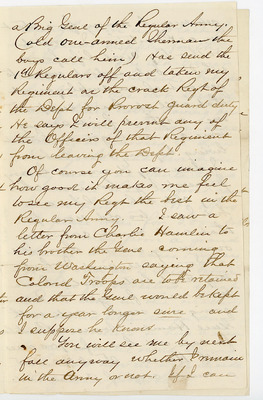 a Brig Genl of the Regular Army.
(old one-armed Sherman the
boys call him) Has send the
1st Regulars off and taken my
Regiment as the crack Regt of
the Dept for Provost guard duty
He says I will prevent any of
the Officers of that Regiment
from leaving the Dept.
Of course you can imagine
how good it makes me feel
to see my Regt the best in the
Regular Army. I saw a
letter from Charlie Hamlin to
his brother the Genl. coming
from Washington saying that
Colored Troops are to be retained
and that the Genl would be kept
for a year longer sure and
I suppose he knows
You will see me by next
fall anyway whether I remain
in the Army or not. If I can